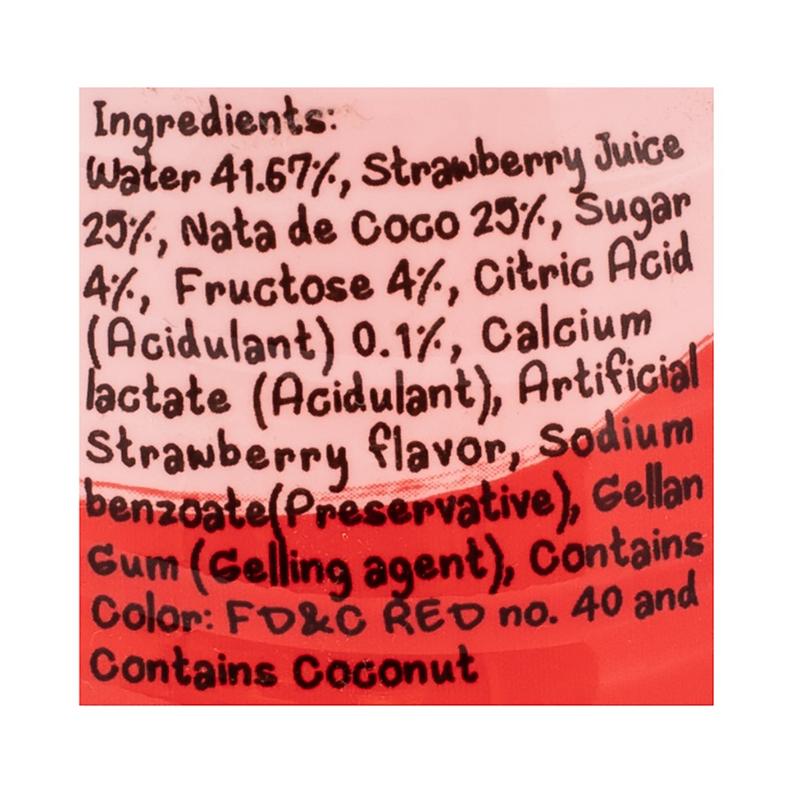 Ingredients:
Water 41.67%, Strawberry Juice
25%, Nata de Coco 25%, Sugar
4%, Fructose 4%, Citric Acid
(Acidulant) 0.1%, Calcium
lactate (Acidulant), Artificial
Strawberry flavor, Sodium
benzoate(Preservative), Gellan
Gum (Gelling agent), Contains
Color: FD&C RED no. 40 and
Contains Coconut